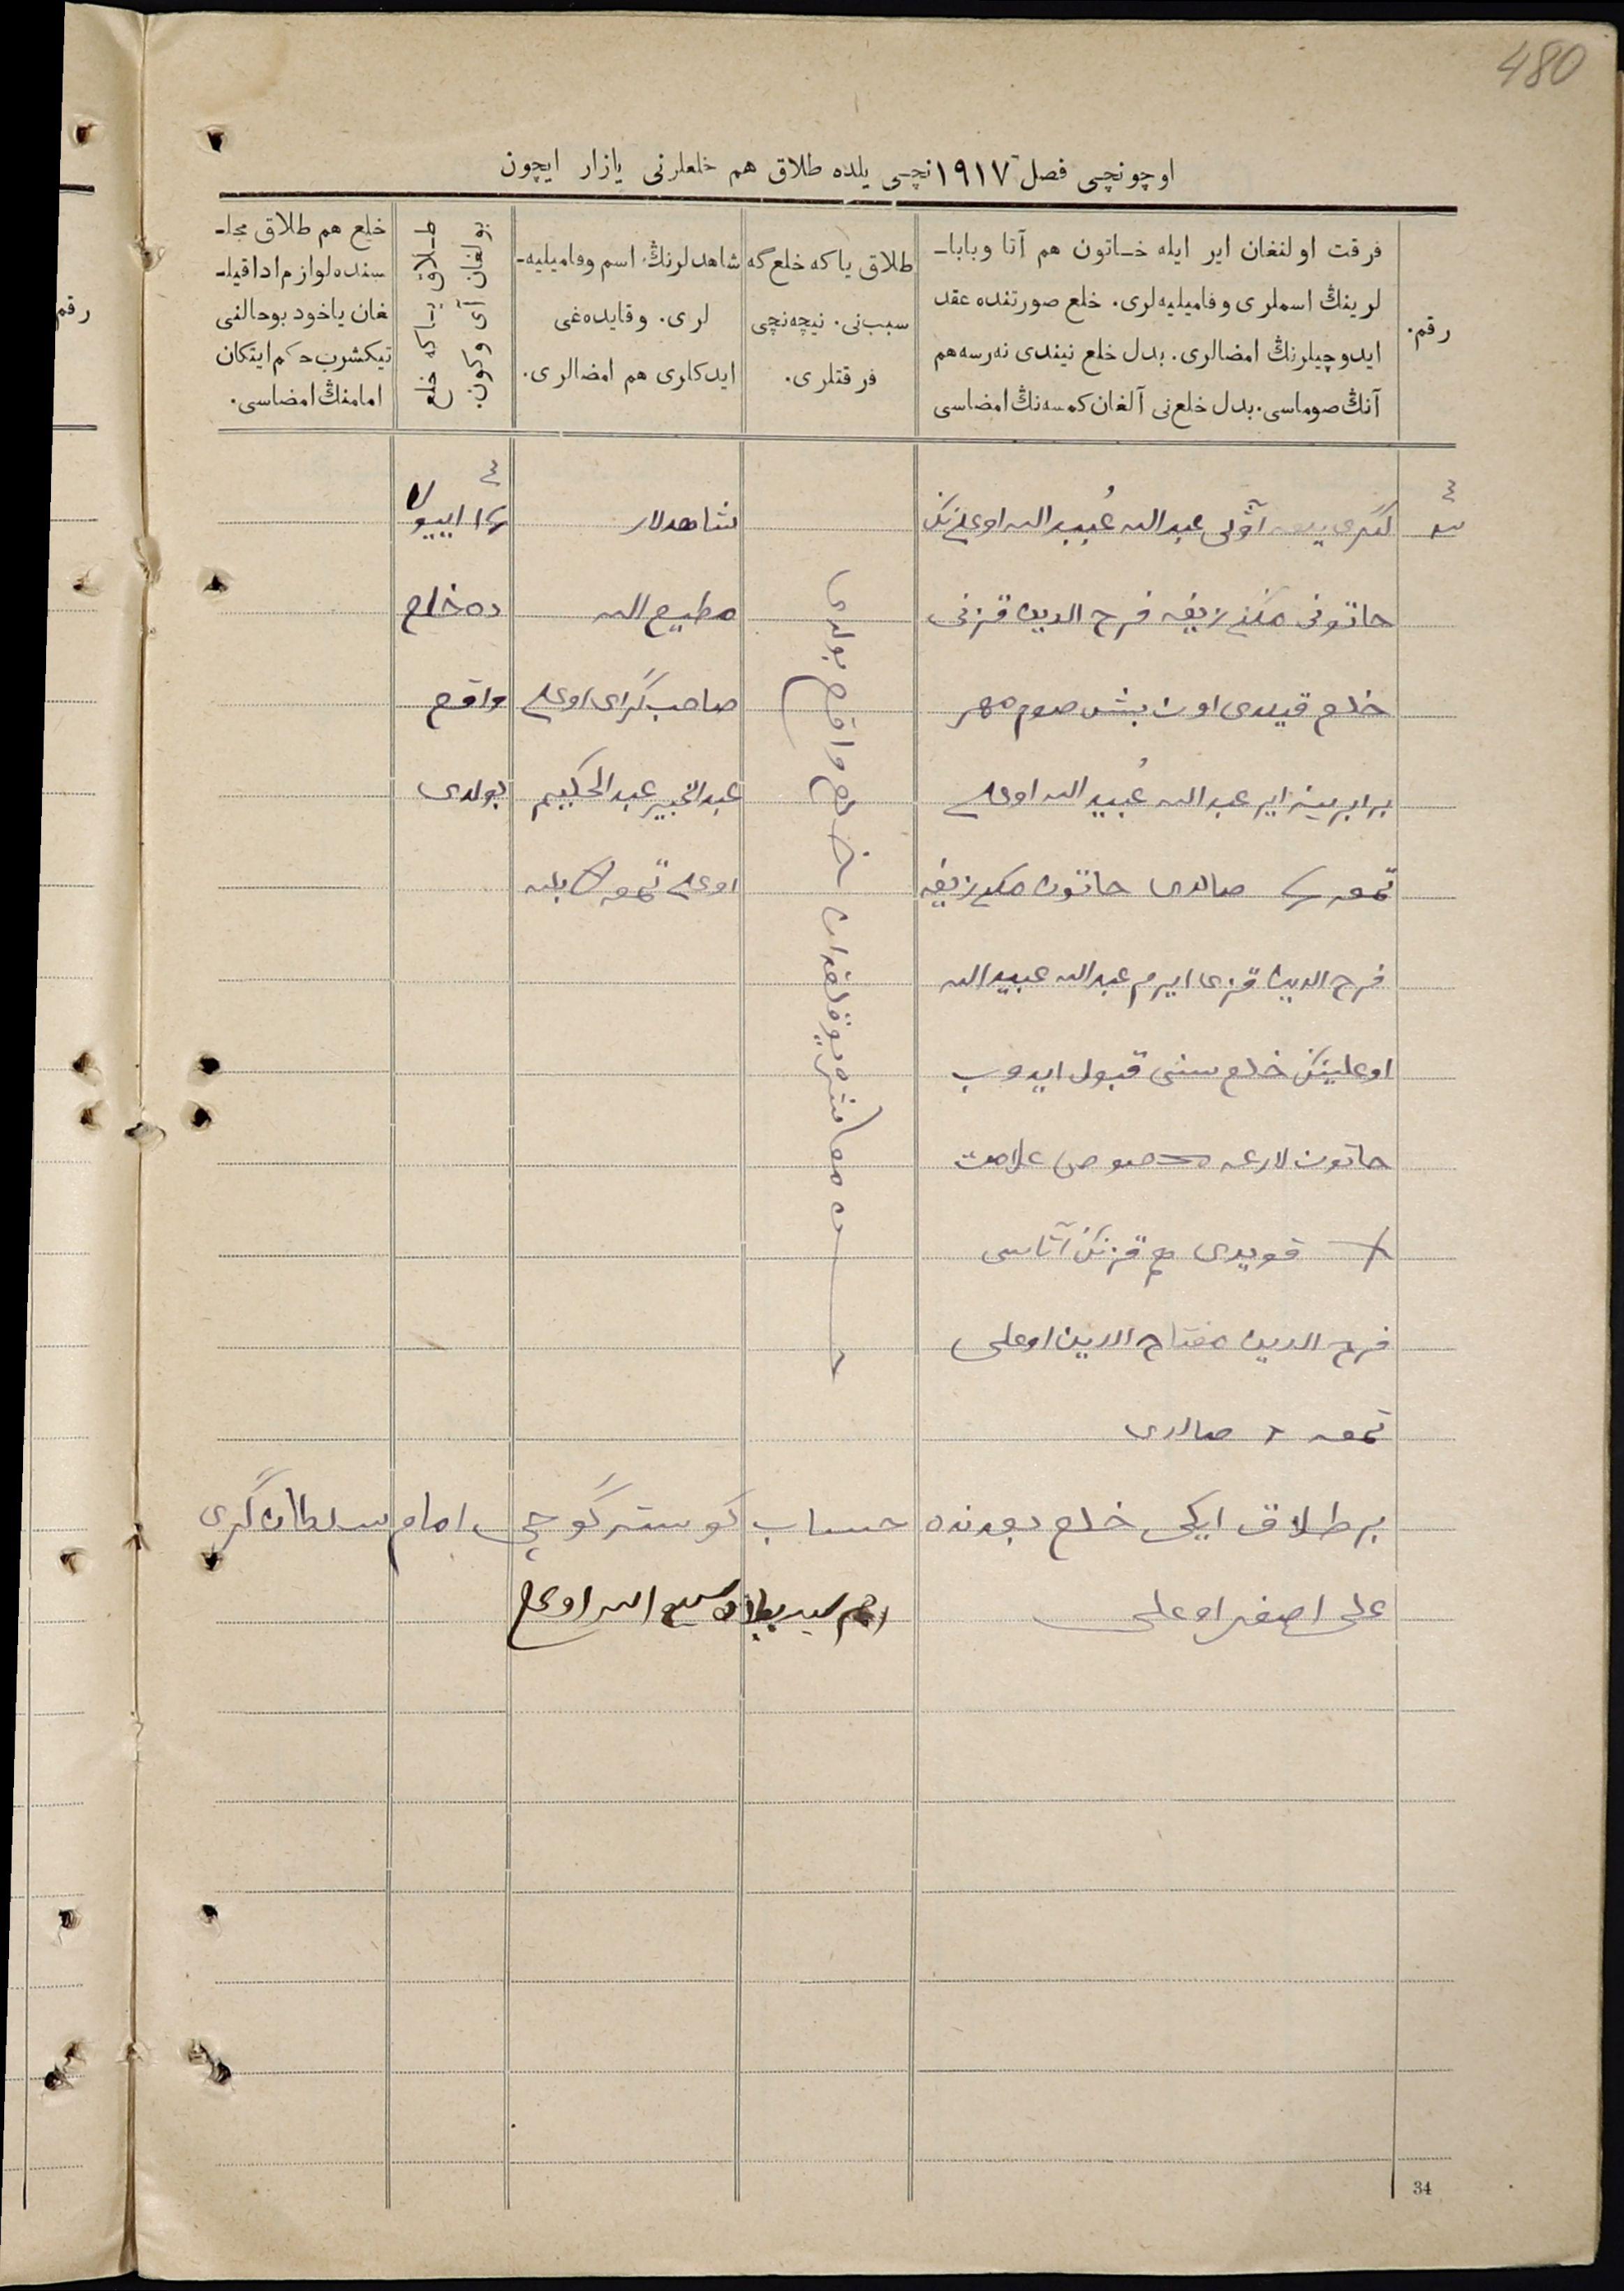 480
اوچونچی فصل ۱۹۱۷نچی یلده طلاق هم خلعلرنی یازار ایچون
رقم.
فرقت اولنغان ایر ایله خاتون هم آتا وبابا-
لرینڭ اسملری وفامیلیه‌لری. خلع صورتنده عقد
ایدوچیلرنڭ امضالری. بدل خلع نیندی نه‌رسه هم
آنڭ صوماسی. بدل خلع‌نی آلغان کمسه‌نڭ امضاسی
طلاق یاکه خلع گه
سبب‌نی. نیچه‌نچی
فرقتلری.
شاهدلرنڭ اسم وفامیلیه-
لری. وقایده‌غی
ایدکلری هم امضالری.
طلاق یاکه خلع
بولغان آی وکون.
خلع هم طلاق مجل-
سنده لوازم ادا قیل-
غان یاخود بوحالنی
تیکشرب حکم ایتکان
امامنڭ امضاسی.
رقم
آۋلی عبدالله عُبیدالله اوغلی‌نڭ
خاتونی فرح الدین قزنی
خلع قیلدی اون بش صوم مهر
برابرینه ایر عبدالله عُبیدالله اوغلی
تمغه صالدی خاتون
فرح الدین قزی ایرم عبدالله عبیدالله
اوغلینڭ خلع سنی قبول ایدوب
خاتون لارغه مخصوص علامت
قویدی هم قزنڭ آتاسی
فرح الدین مفتاح الدین اوغلی
تمغه صالدی
خلع واقع بولدی
شاهدلار
مطیع الله
صاحب گرای اوغلی
عبدالخبیر عبدالحکیم
اوغلی
۱۴ اییول
ده خلع
واقع
بولدی
بر طلاق ایکی خلع بعدنده حساب کوسترگوچی امام سلطان گری
علی اصغر اوغلی
34